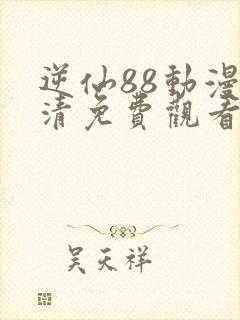 逆仙88動漫
清免費觀看
吴天祥